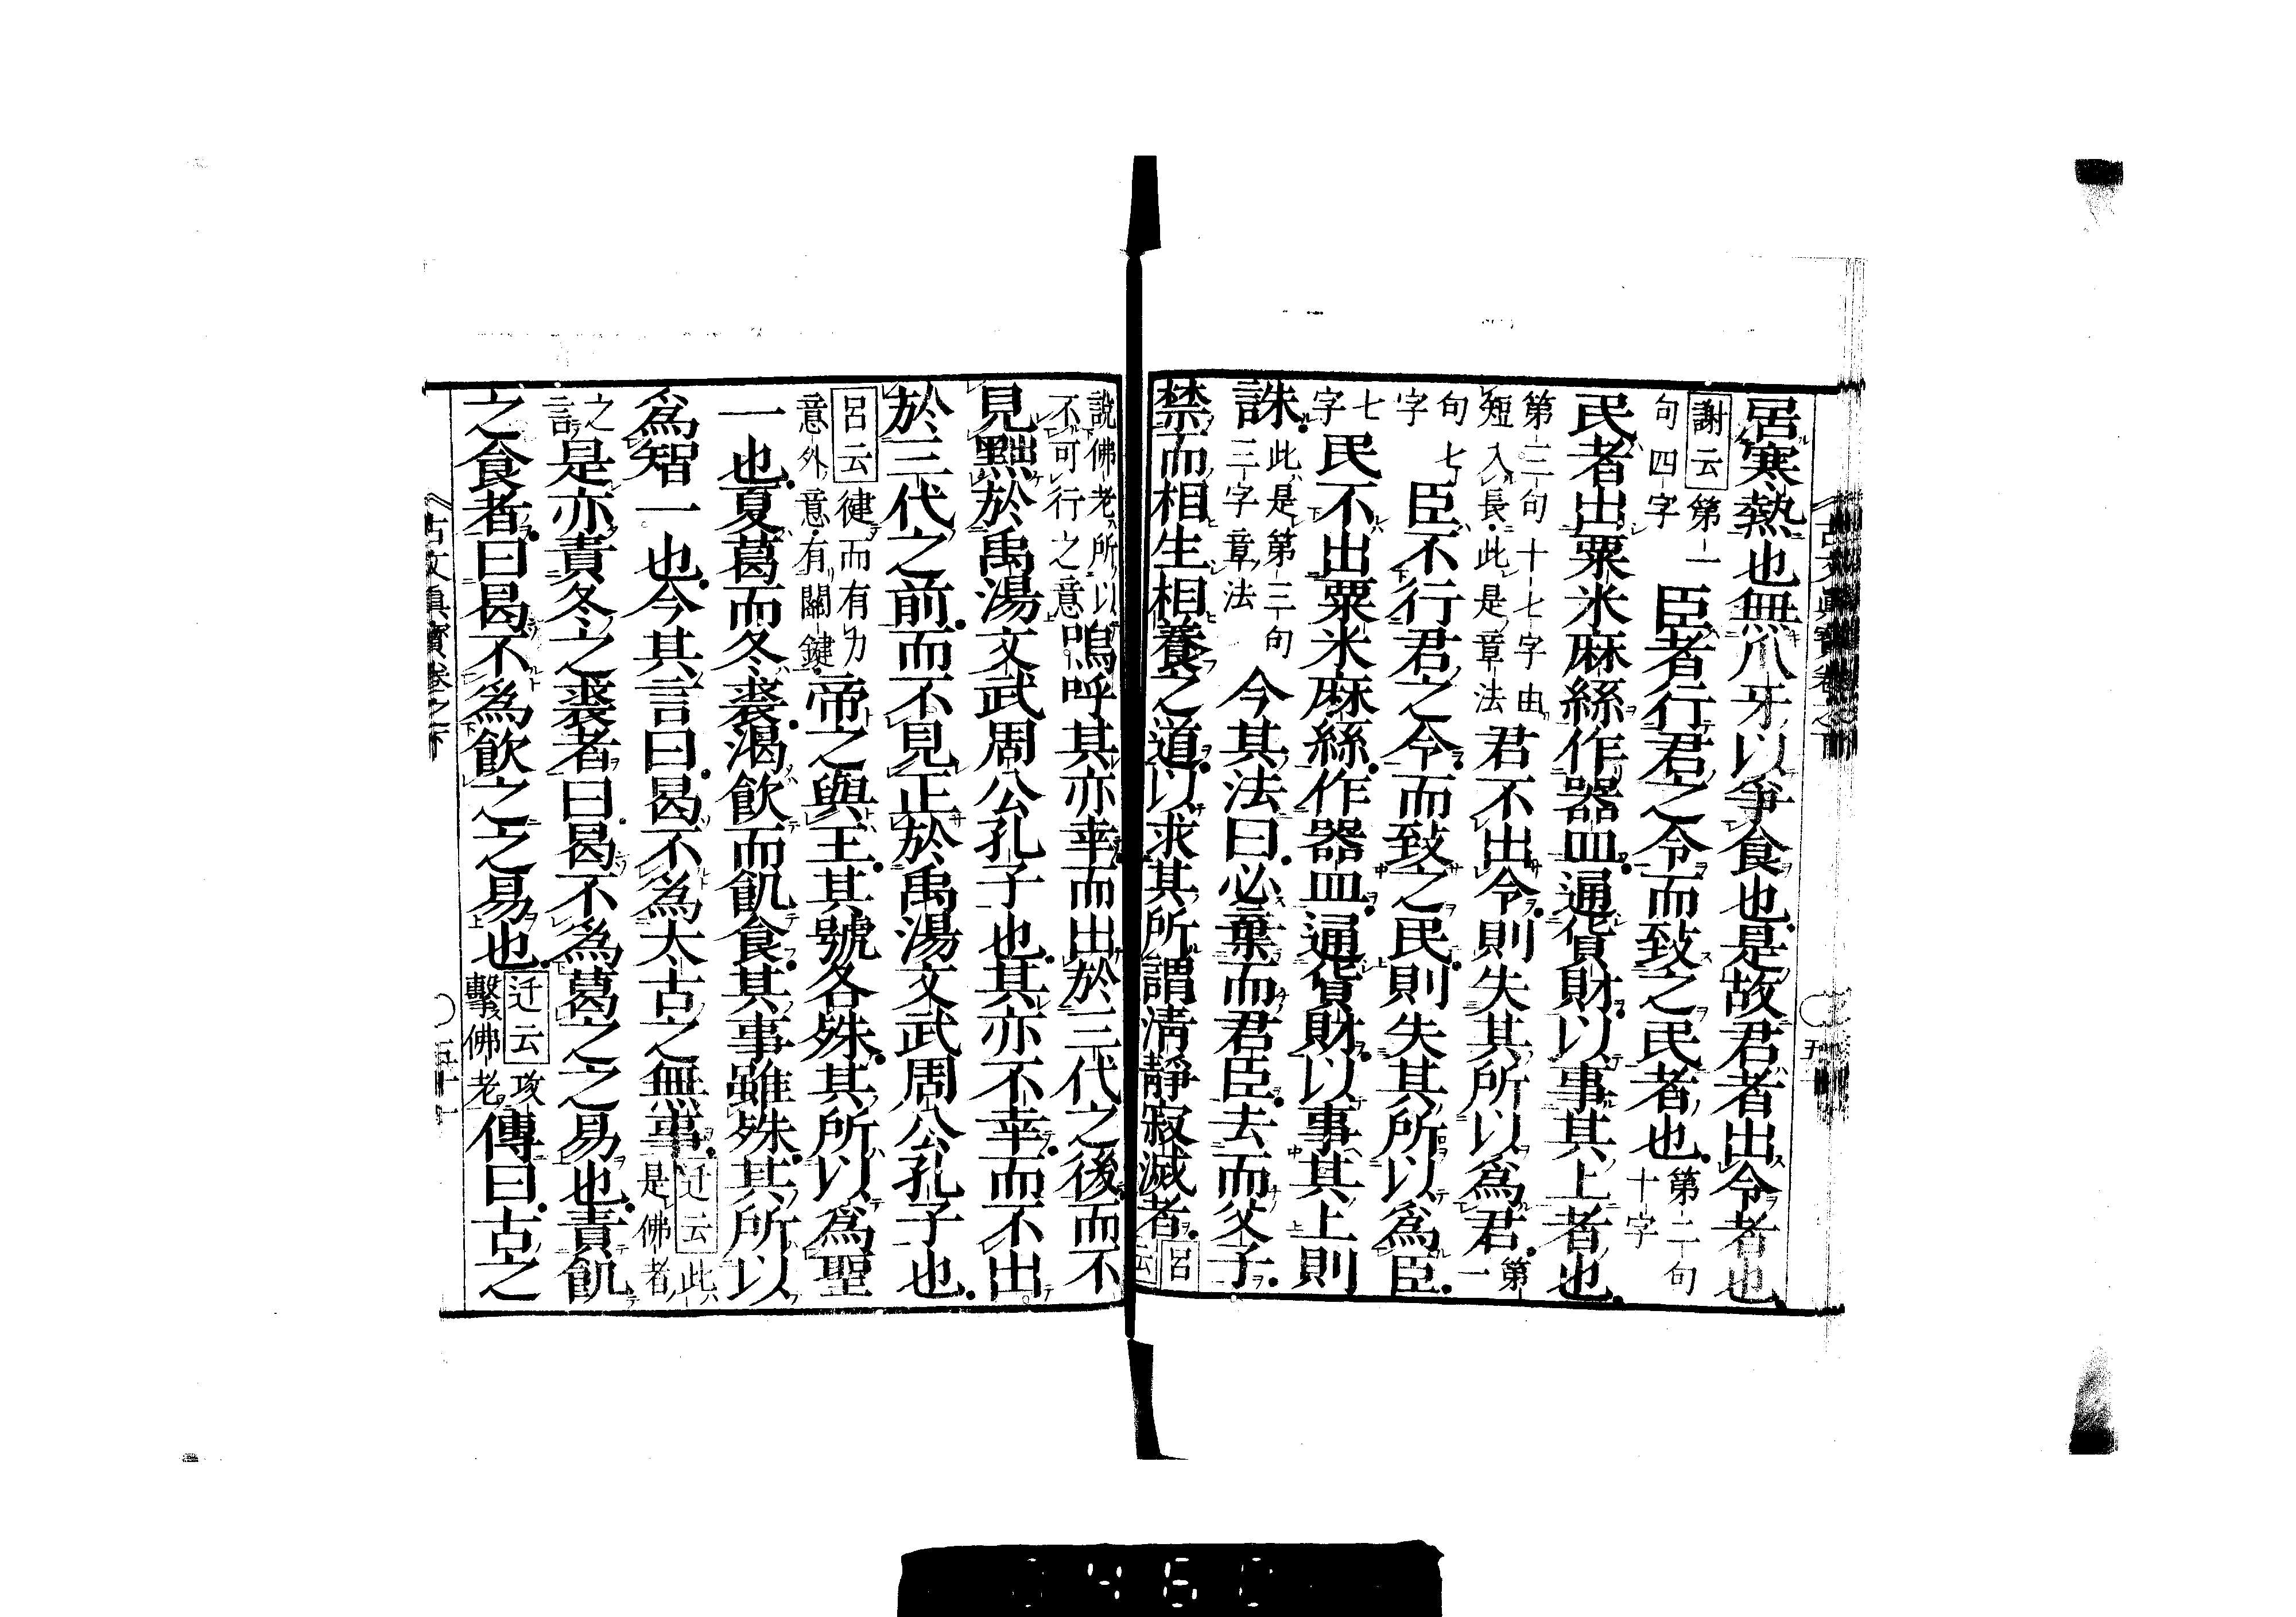 居寒熱也無爪牙以爭食也是故君者出令者也
謝云第一
句四字
臣者行君之令而致之民者也
第二句
十字
民者出粟米麻絲作器皿通貨財以事其上者也
第三句十七字由
短入長此是章法
君不出令則失其所以爲君
第一
句七
字
臣不行君之令而致之民則失其所以爲臣
七
字
民不出粟米麻絲作器皿通貨財以事其上則
誅
此是第三句
三字章法
今其法曰必棄而君臣去而父子
禁而相生相養之道以求其所謂淸靜寂滅者
呂
云
說佛老所以
不可行之意
嗚呼其亦幸而出於三代之後而不
見黜於禹湯文武周公孔子也其亦不幸而不出
於三代之前而不見正於禹湯文武周公孔子也
呂云健而有力
意外意有關鍵
帝之與王其號各殊其所以爲聖
一也夏葛而冬裘渴飮而飢食其事雖殊其所以
爲智一也今其言曰曷不爲太古之無事
迂云此
是佛者
之
言
是亦責冬之裘者曰曷不爲葛之之易也責飢
之食者曰曷不爲飮之之易也
迂云攻
擊佛老
傳曰古之
古文眞寶卷之下